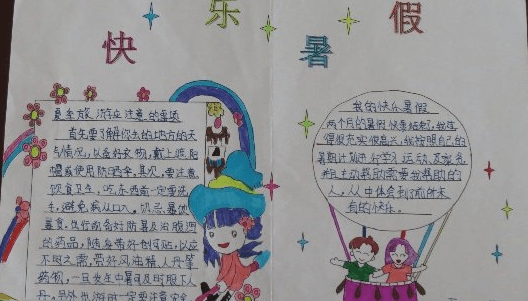 快乐暑假
夏季旅游应注意的事项
首先要了解你去的地方的天
气情况,以备好衣物,戴上遮阳
帽或使用防晒伞具。要注意
饮食卫生,吃东西前一定要洗
手,避免病从口入。切忌暴饮
暴食。出行前备好防暑及治腹泻
的药品,随身带好创可贴,以应
不明之需,带好风油精人丹等
药物,一旦发生中暑可及时服下人
丹。另外出游时一定要注意安全
我的快乐暑假
两个月的暑假快要结束了,我
得很充实很高兴。我按照自己的
暑期计划进行学习运动
和主动帮助需要我帮助的
人。从中体会到了前所未
有的快乐。